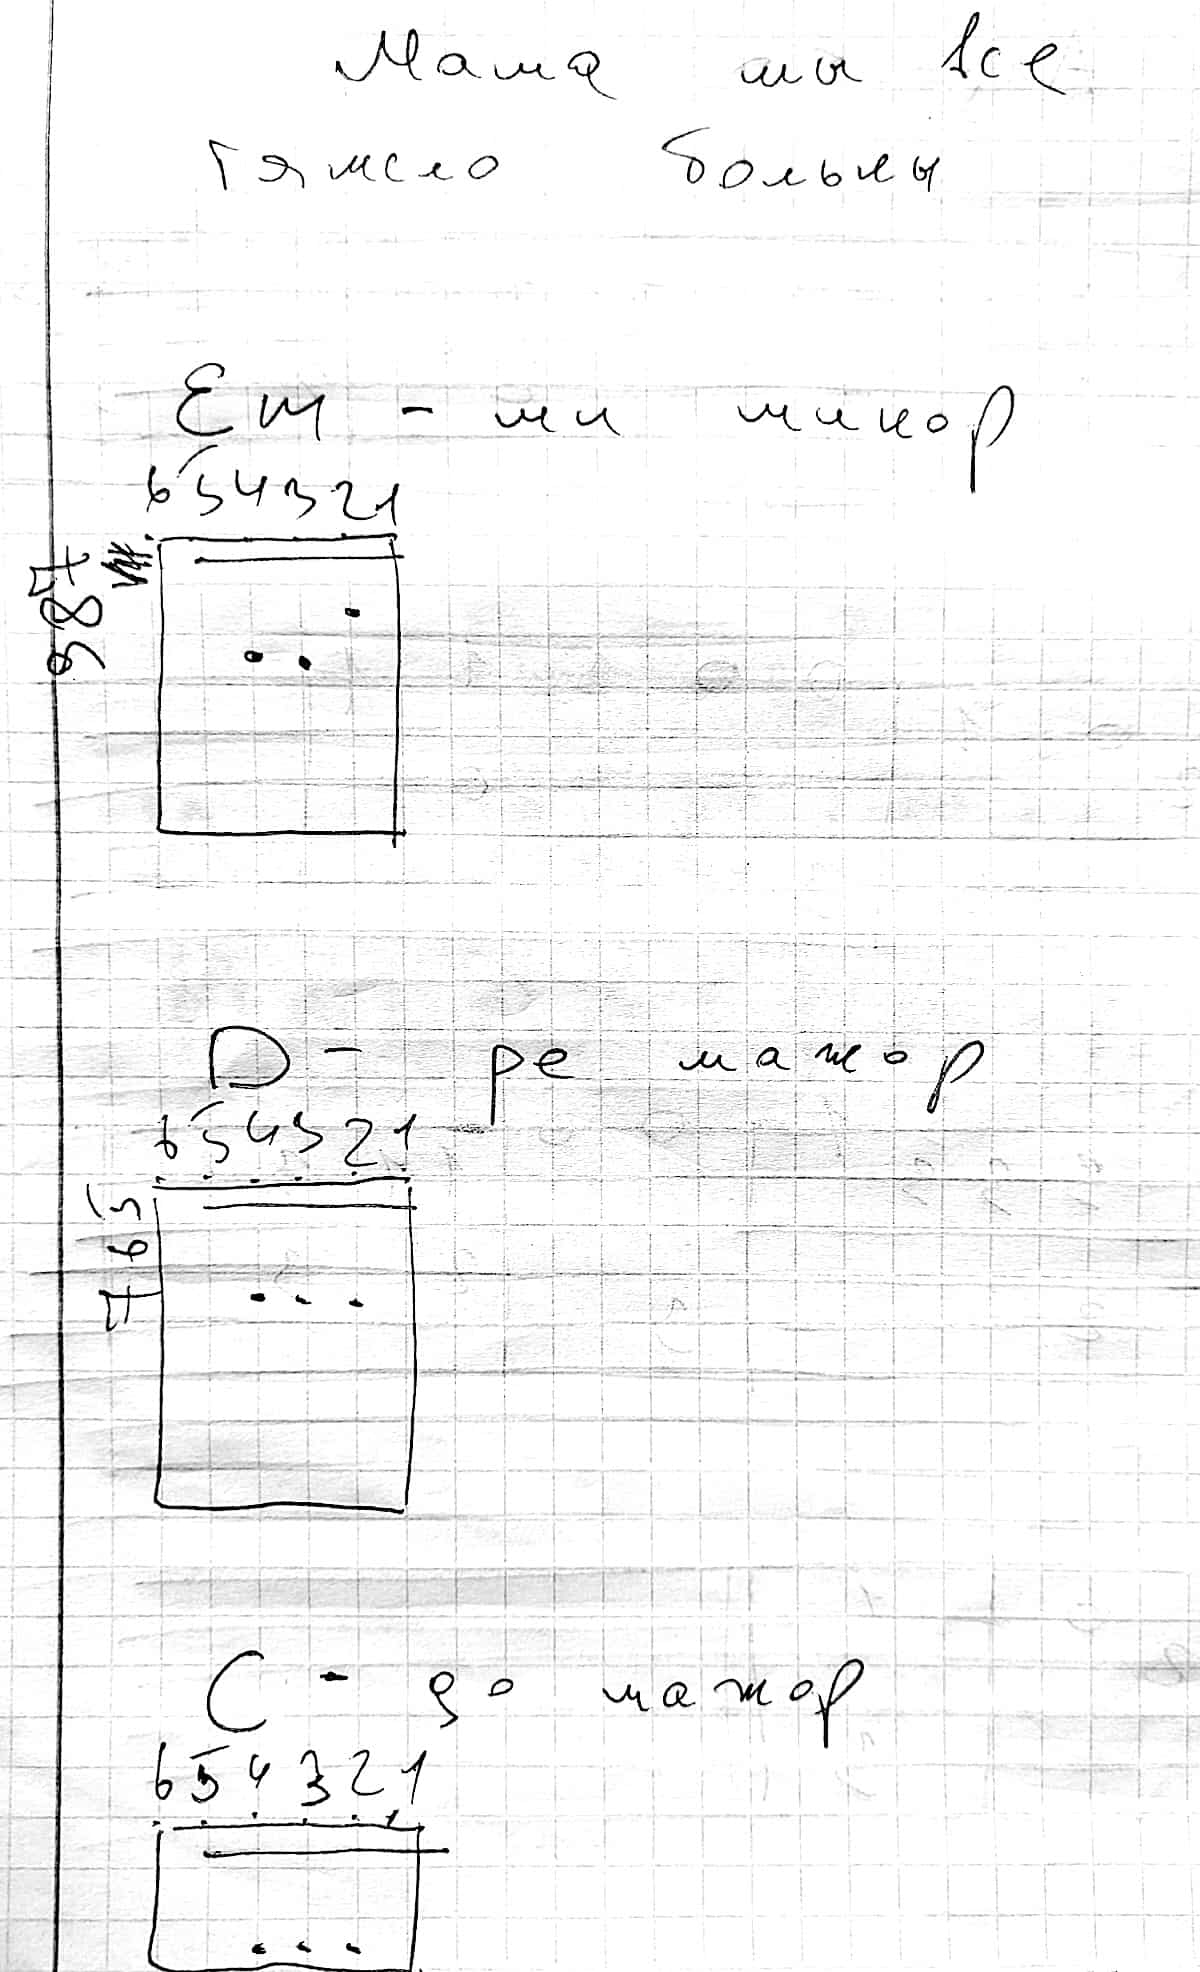 Мама мы все
тяжело больны
Em - ми минор
6 5 4 3 2 1
7
8
9
D - ре мажор
6 5 4 3 2 1
5
6
7
C - до мажор
6 5 4 3 2 1